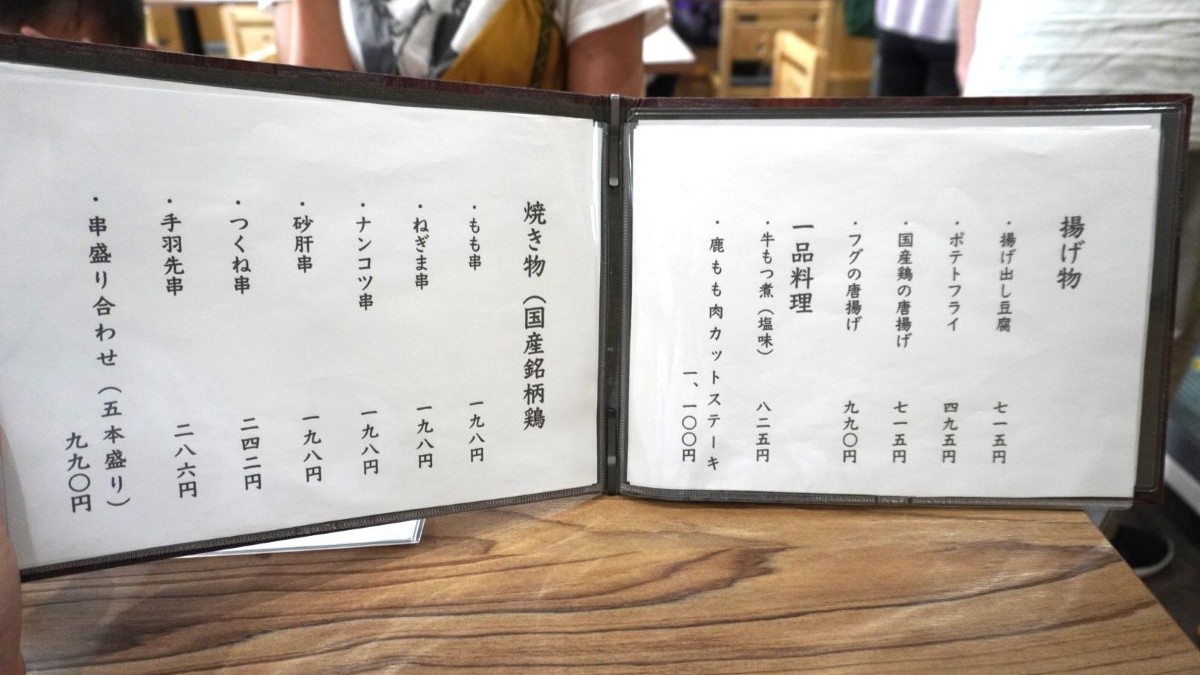 揚げ物
・揚げ出し豆腐 七一五円
・ポテトフライ 四九五円
・国産鶏の唐揚げ 七一五円
・フグの唐揚げ 九九〇円
一品料理
・牛もつ煮（塩味） 八二五円
・鹿もも肉カットステーキ
一、一〇〇円
焼き物（国産銘柄鶏）
・もも串 一九八円
・ねぎま串 一九八円
・ナンコツ串 一九八円
・砂肝串 一九八円
・つくね串 二四二円
・手羽先串 二八六円
・串盛り合わせ（五本盛り）
九九〇円